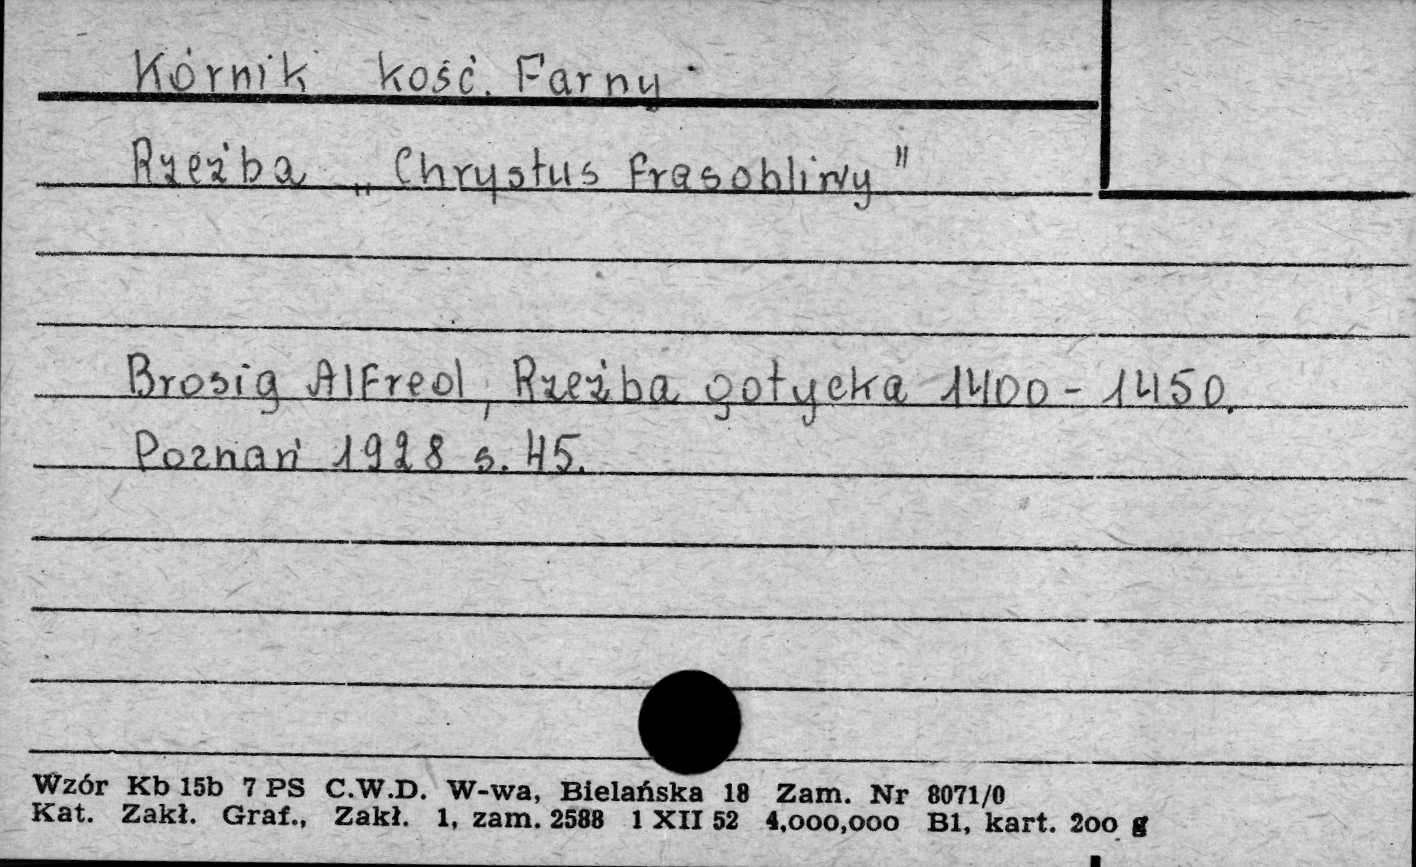 Kórnik kość. Farny
Rzeźba „Chrystus Frasobliwy"
Brosig Alfred, Rzeźba gotycka 1400 - 1450.
Poznań 1928 s. 45.
Wzór Kb 15b 7 PS C.W.D. W-wa, Bielańska 18 Zam. Nr 8071/0
Kat. Zakł. Graf., Zakł. 1, zam. 2588 1 XII 52 4,000,000 B1, kart. 200 g